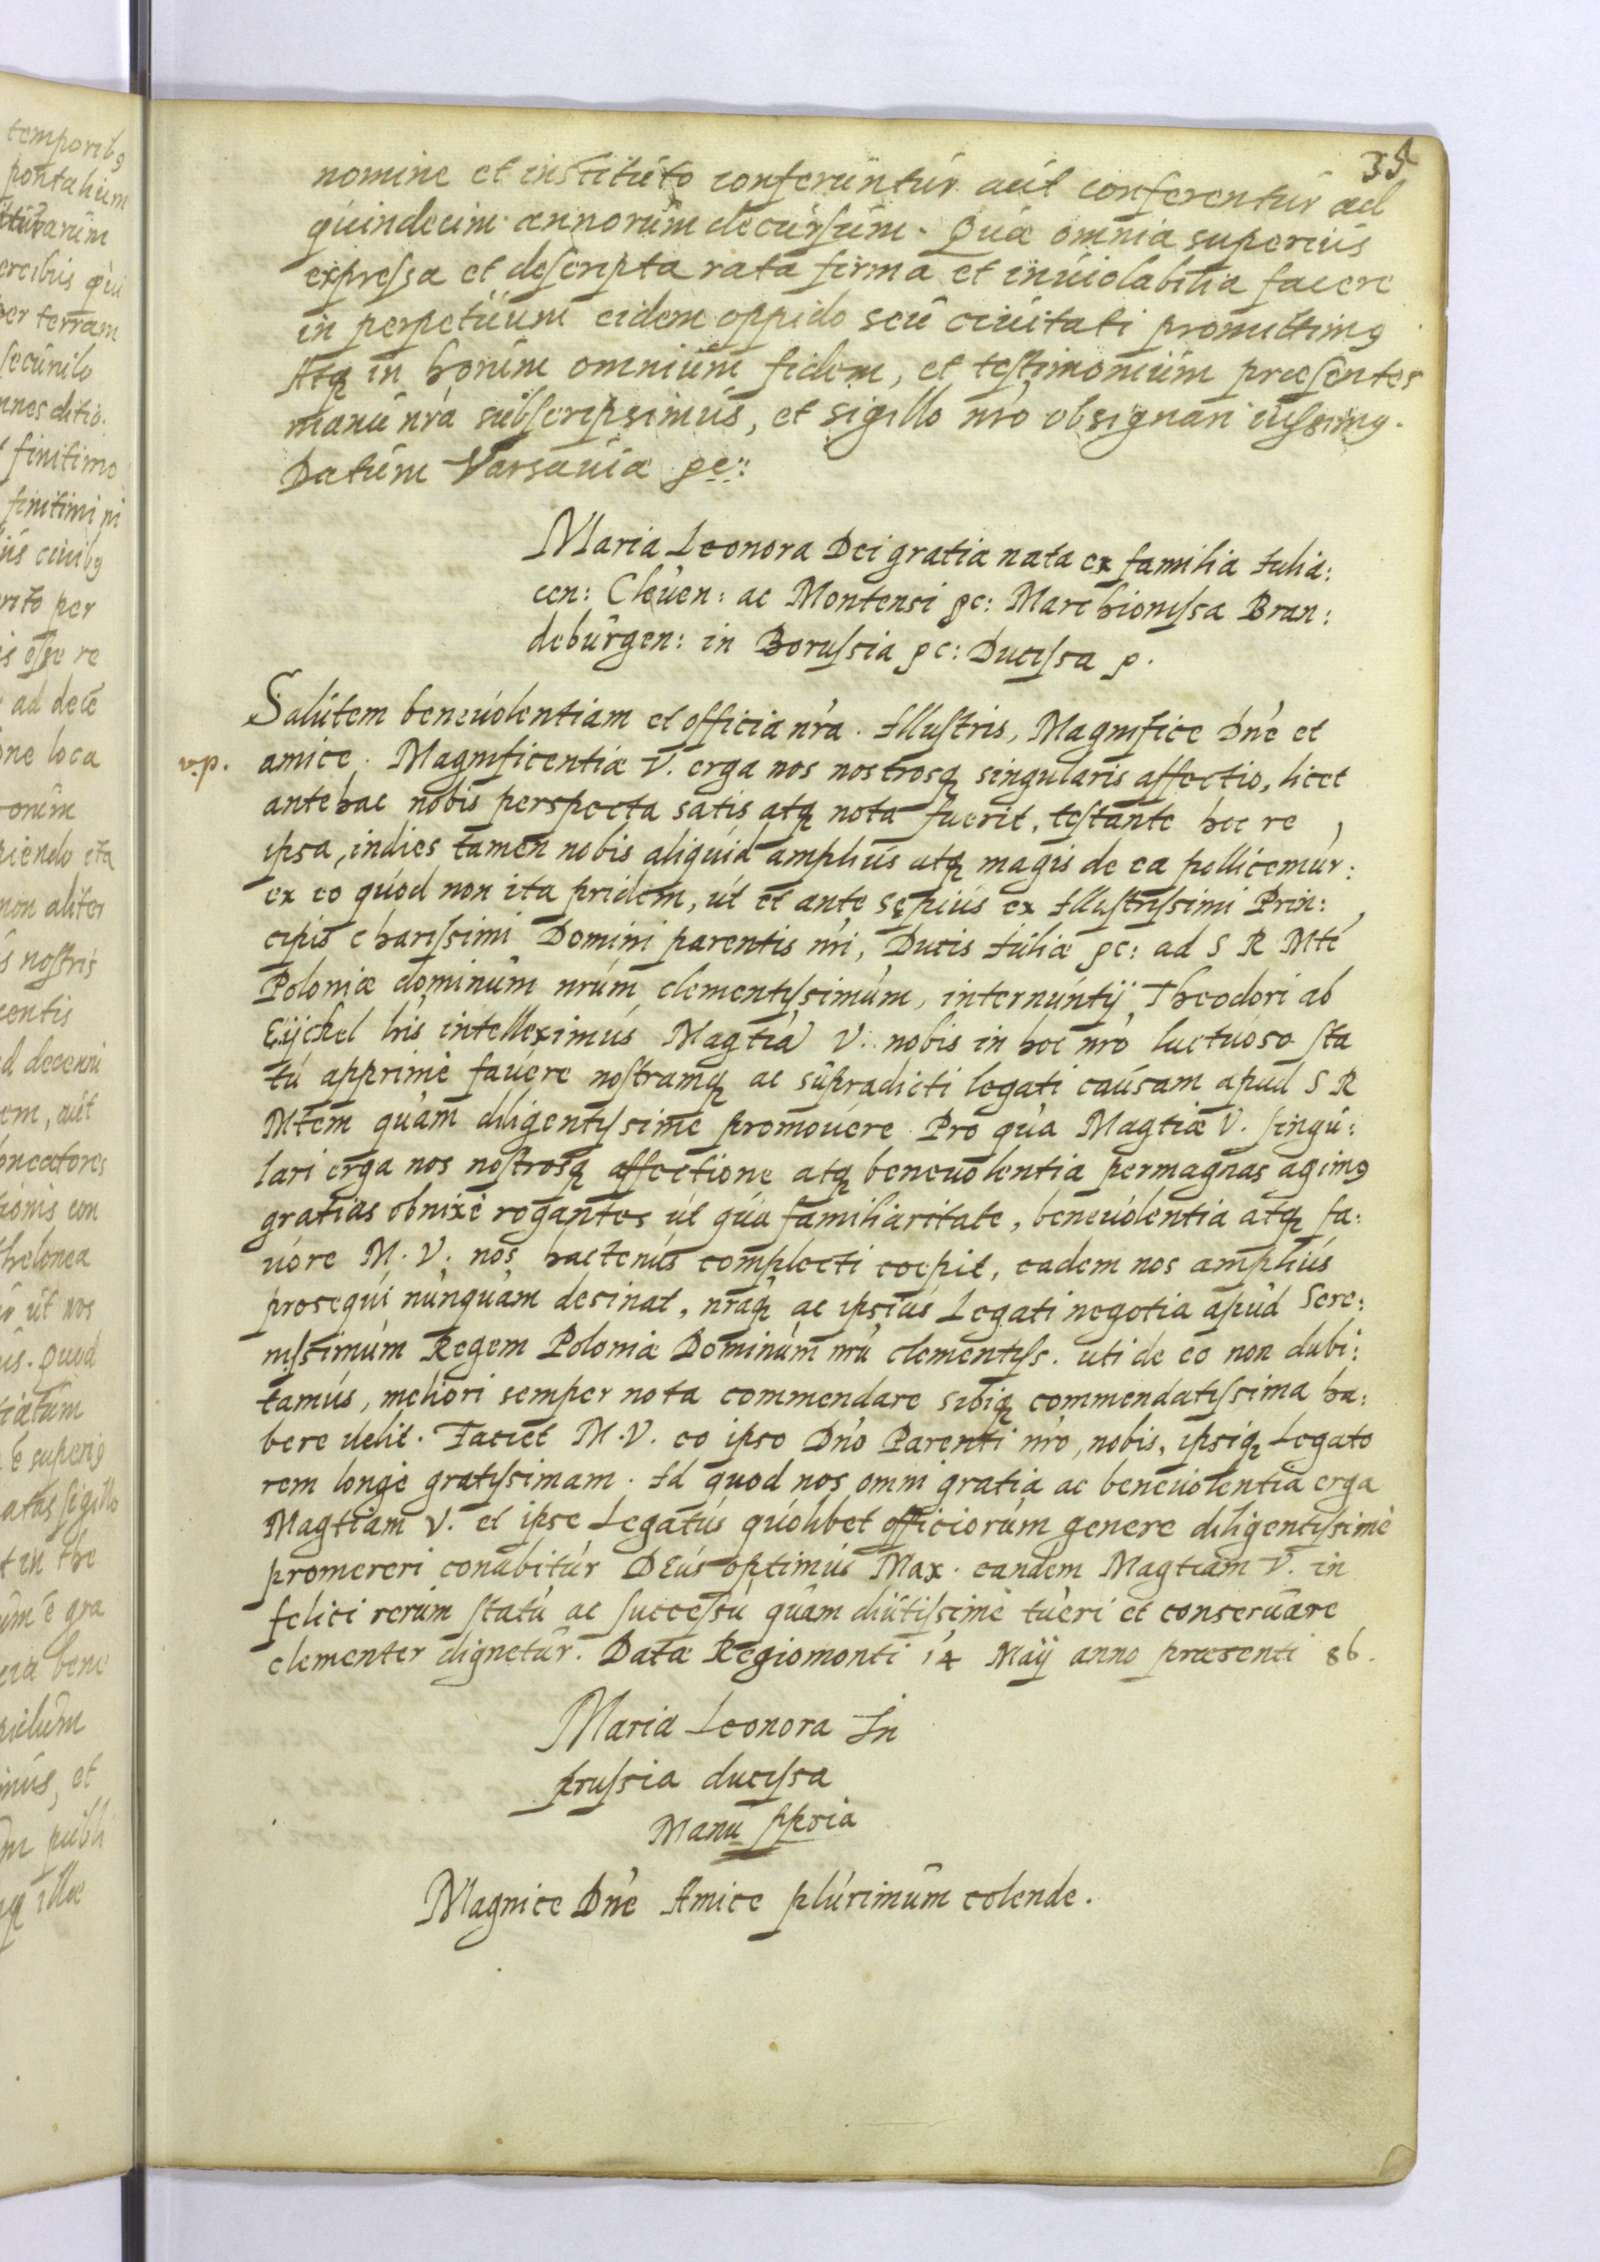 35
nomine et instituto conferuntur aut conferentur ad
quindecim annorum decursum. Quæ omnia superius
expressa et descripta rata firma et inuiolabilia facere
in perpetuum eidem oppido seu ciuitati promittimꝰ
Atqꝫ in horum omnium fidem, et testimonium præsentes
manu nrá subscripsimus, et sigillo nró obsignari iussimꝰ.
Datum Varsauiæ &c:
Maria Leonora Dei gratia nata ex familia Iulia:
cen: Cleuen: ac Montensi &c: Marchionissa Bran:
deburgen: in Borussia &c: Ducissa &.
Salutem beneuolentiam et officia nrá. Illustris, Magnifice Dné et
v.p.
amice. Magnificentiæ V. erga nos nostrosqꝫ singularis affectio, licet
antehac nobis perspecta satis atqꝫ nota fuerit, testante hoc re
ipsa, indies tamen nobis aliquid amplius atqꝫ magis de ea pollicemur:
ex eo quod non ita pridem, ut et ante sępius ex Illustrissimi Prin:
cipis charissimi Domini parentis nri, Ducis Iuliæ &c: ad S R Mté
Poloniæ dominum nrúm clementissimum, internuntij Theodori ab
Eijckel lris intelleximus Magtiá V. nobis in hoc nró luctuoso sta
tu apprimè fauere nostramqꝫ ac supradicti legati causam apud S R
Mtem quam diligentissime promouere. Pro qua Magtiæ V. singu:
lari erga nos nostrosqꝫ affectione atqꝫ beneuolentia permagnas agimꝰ
gratias obnixè rogantes ut qua familiaritate, beneuolentia atqꝫ fa:
uore M. V. nos hactenus complecti coepit, eadem nos amplius
prosequi nunquam desinat, nráqꝫ ac ipsius Legati negotia apud Sere:
nissimum Regem Poloniæ Dominum nrú clementiss. uti de eo non dubi:
tamus, meliori semper nota commendare sibiqꝫ commendatissima ha:
bere uelit. Faciet M.V. eo ipso Dnó Parenti nró, nobis, ipsiqꝫ Legato
rem longè gratissimam. Id quod nos omni gratia ac beneuolentia erga
Magtiam V. et ipse Legatus quolibet officiorum genere diligentissimè
promereri conabitur DEus optimus Max. eandem Magtiam V. in
felici rerum statu ac successu quam diutissimè tueri et conseruare
clementer dignetur. Datæ Regiomonti 14 Maij anno præsenti 86.
Maria Leonora In
prussia ducissa
Manu ppria
Magnice Dné Amice plurimum colende.